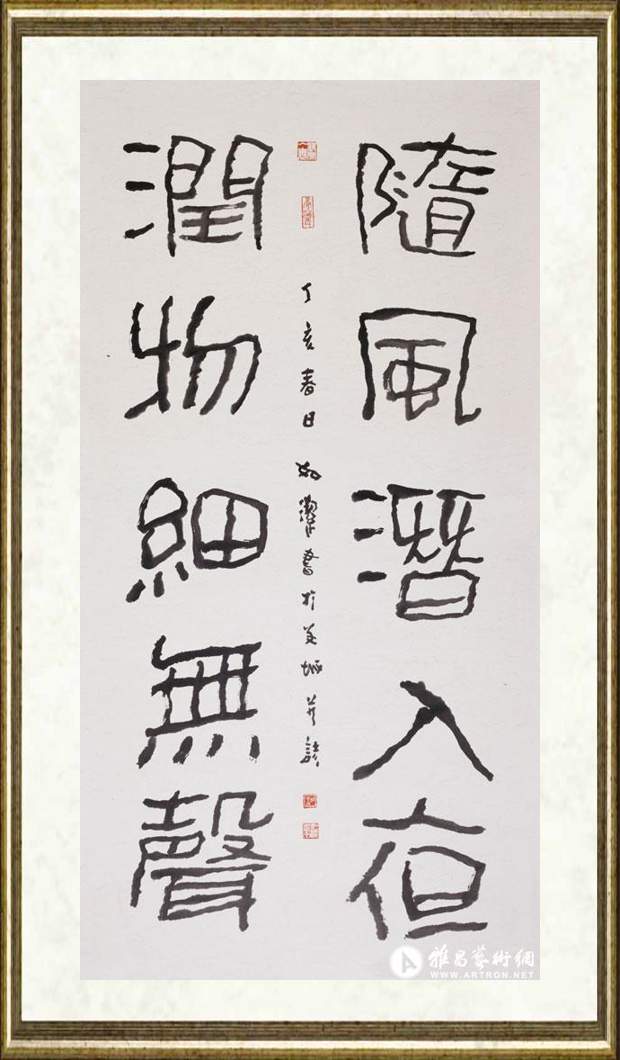 隨風潛入夜
潤物細無聲
丁亥春日
書於
雅昌藝術網
WWW.ARTRON.NET